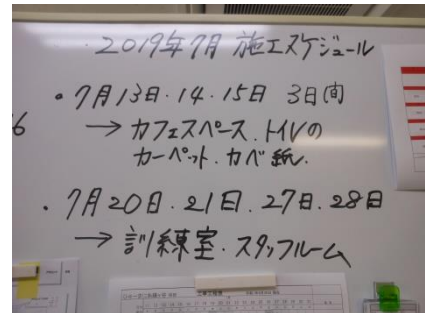 ・2019年7月 施工スケジュール
・7月13日・14・15日 3日間
→カフェスペース.トイレの
カーペット.カベ紙.
・7月20日・21日.27日.28日
→訓練室・スタッフルーム